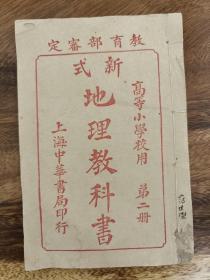 定審部育教
新式
地理教科書
高等小學校用
第二冊
上海中華書局印行